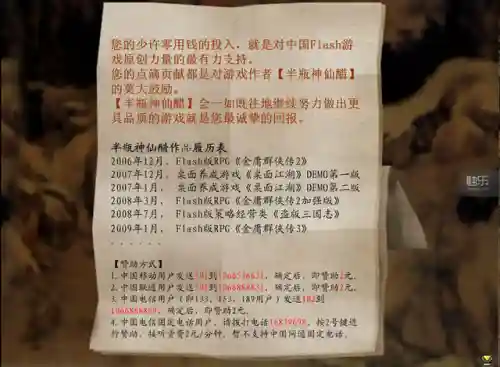 您的少许零用钱的投入，就是对中国Flash游
戏原创力量的最有力支持。
您的点滴贡献都是对游戏作者【半瓶神仙醋】
的莫大鼓励。
【半瓶神仙醋】会一如既往地继续努力做出更
具品质的游戏就是您最诚挚的回报。
半瓶神仙醋作品履历表
2006年12月，Flash版RPG《金庸群侠传2》
2007年12月，桌面养成游戏《桌面江湖》DEMO第一版
2007年1月，桌面养成游戏《桌面江湖》DEMO第二版
2008年3月，Flash版RPG《金庸群侠传2加强版》
2008年7月，Flash版策略经营类《盗版三国志》
2009年1月，Flash版RPG《金庸群侠传3》
......
【赞助方式】
1.中国移动用户发送 到 ，确定后，即赞助2元。
2.中国联通用户发送 到 ，确定后，即赞助2元。
3.中国电信用户（即133、153、189用户）发送 到
，确定后，即赞助2元。
4.中国电信固定电话用户，请拨打电话16839698，按2号键进
行赞助，接听资费2元/分钟，暂不支持中国网通固定电话。